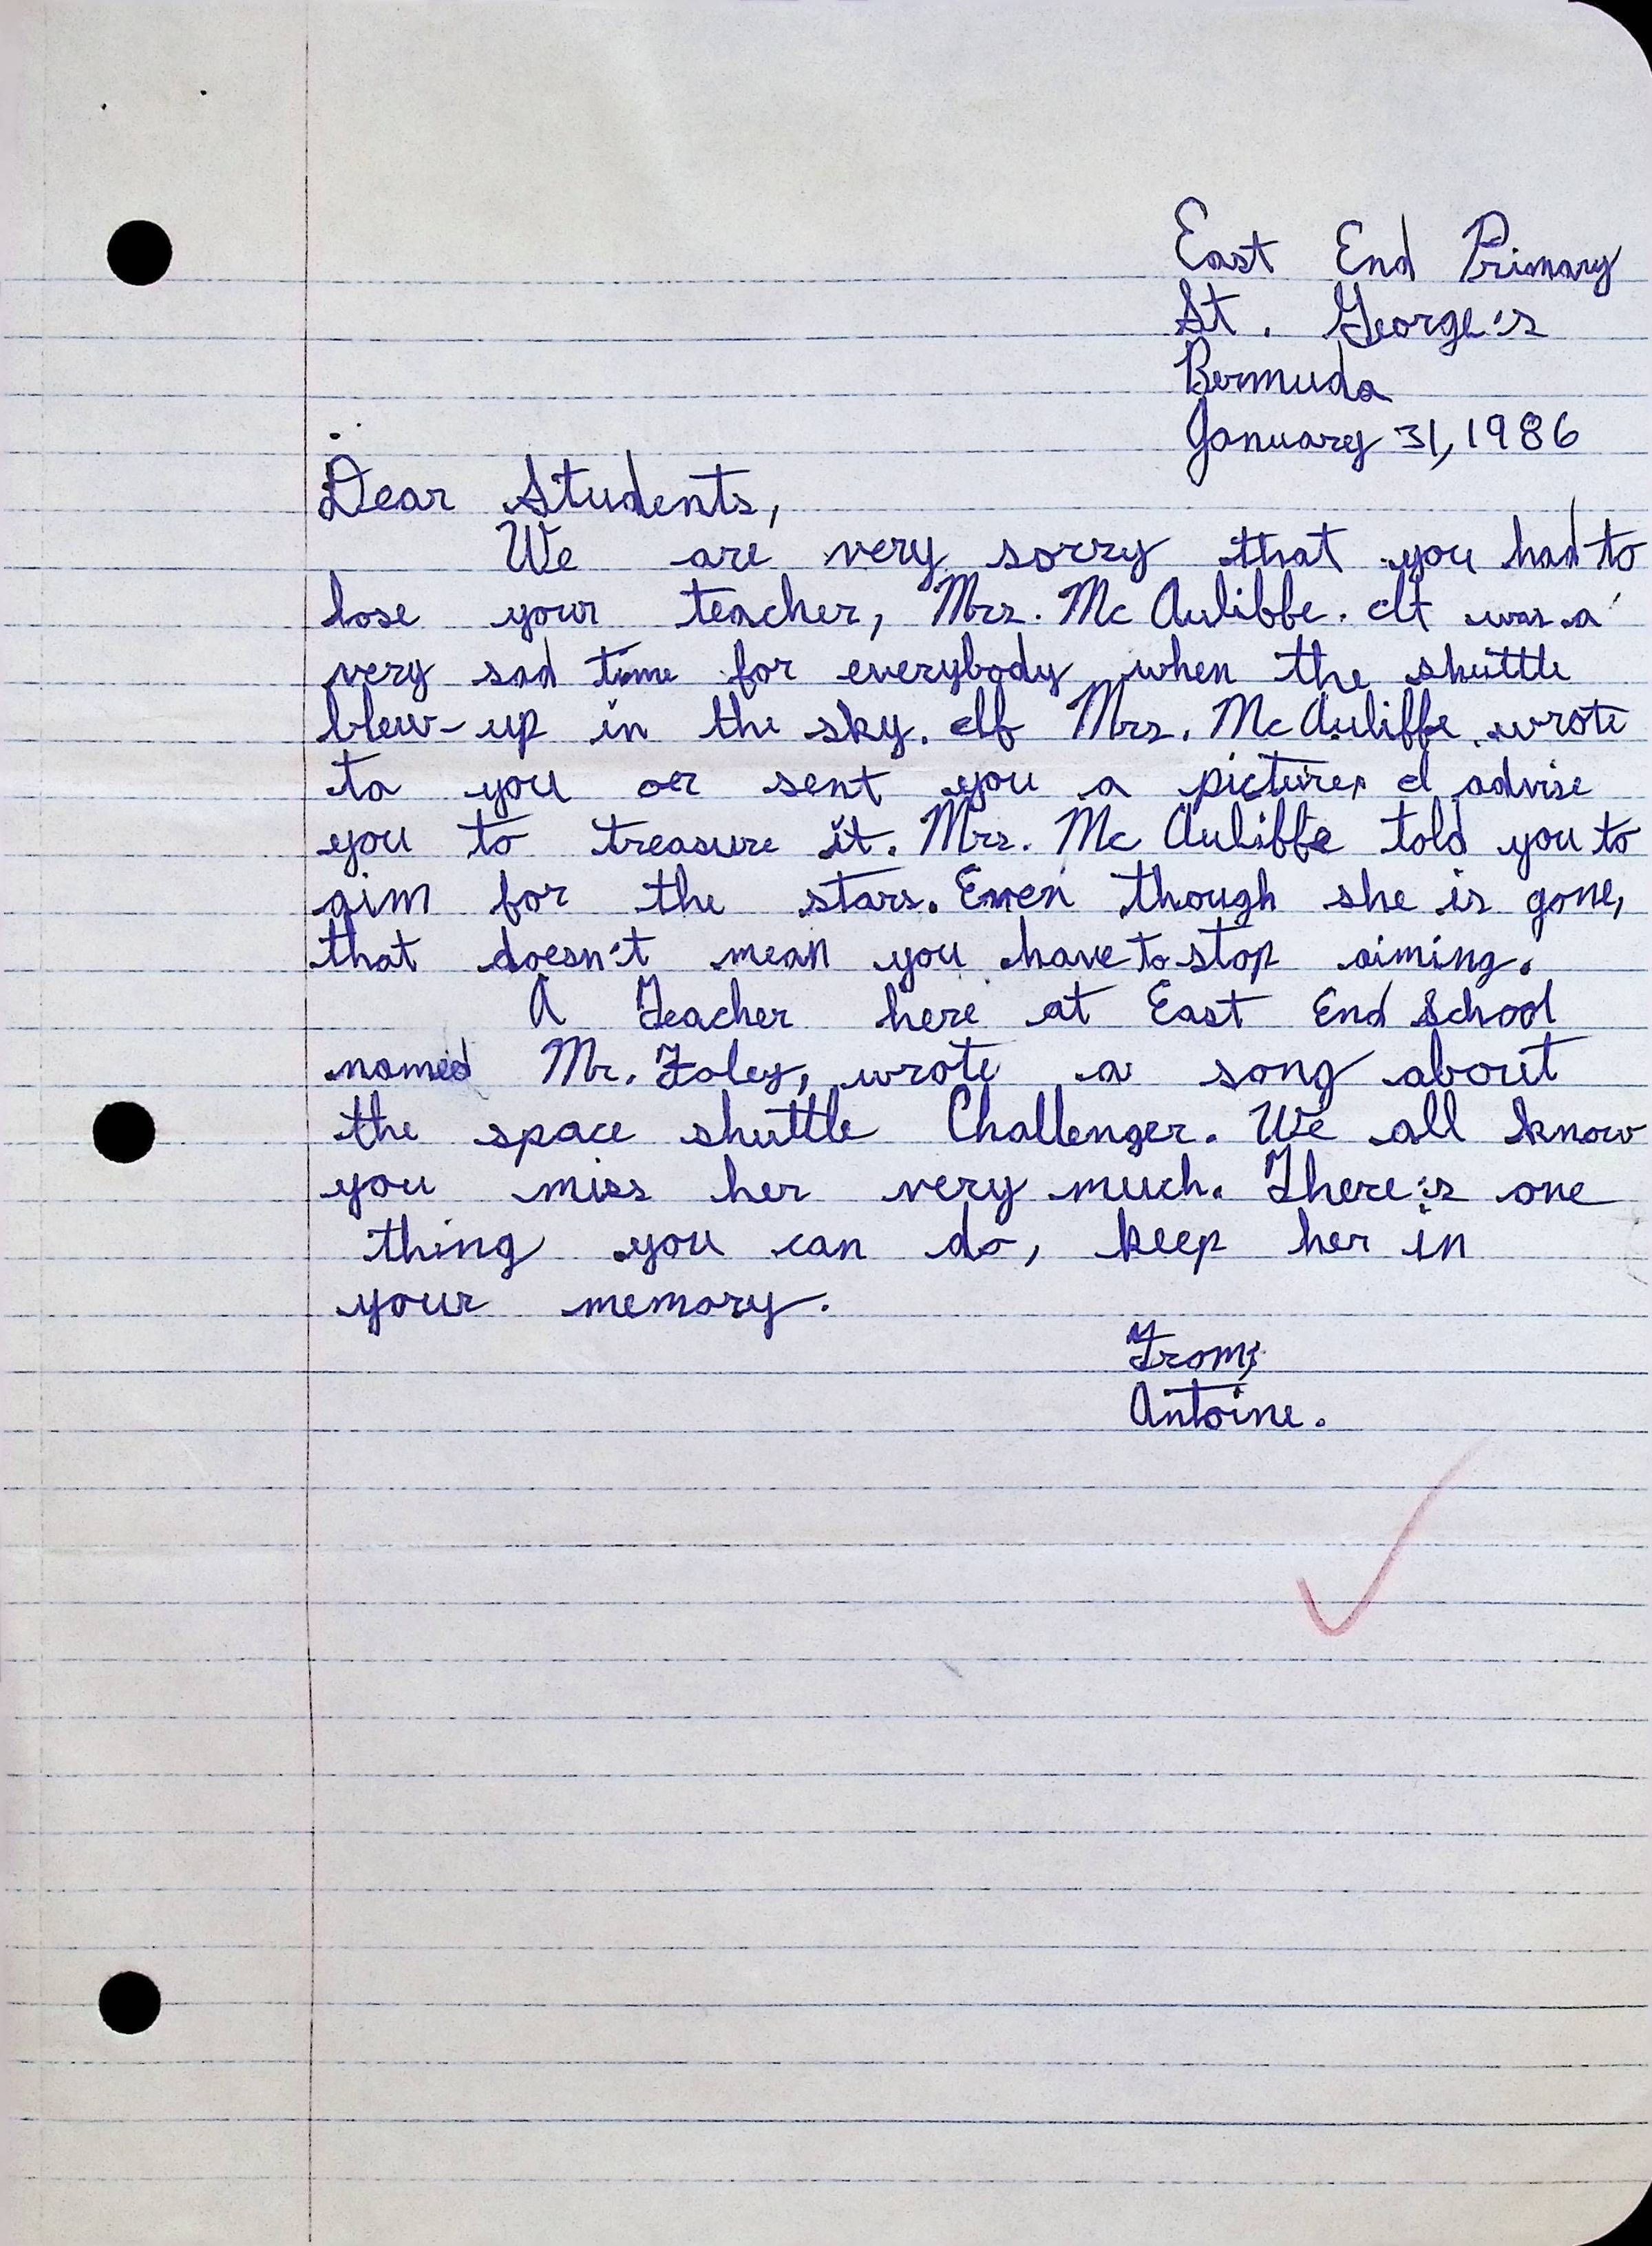 East End Primary
St. George's
Bermuda
January 31, 1986
Dear Students,
We are very sorry that you had to
lose your teacher, Mrs. Mc Auliffe. It was a
very sad time for everybody when the shuttle
blew-up in the sky. If Mrs. Mc Auliffe wrote
to you or sent you a picture, I advise
you to treasure it. Mrs. Mc Auliffe told you to
aim for the stars. Even though she is gone,
that doesn't mean you have to stop aiming.
A Teacher here at East End School
named Mr. Foley, wrote a song about
the space shuttle Challenger. We all know
you miss her very much. There's one
thing you can do, keep her in
your memory.
From,
Antoine.